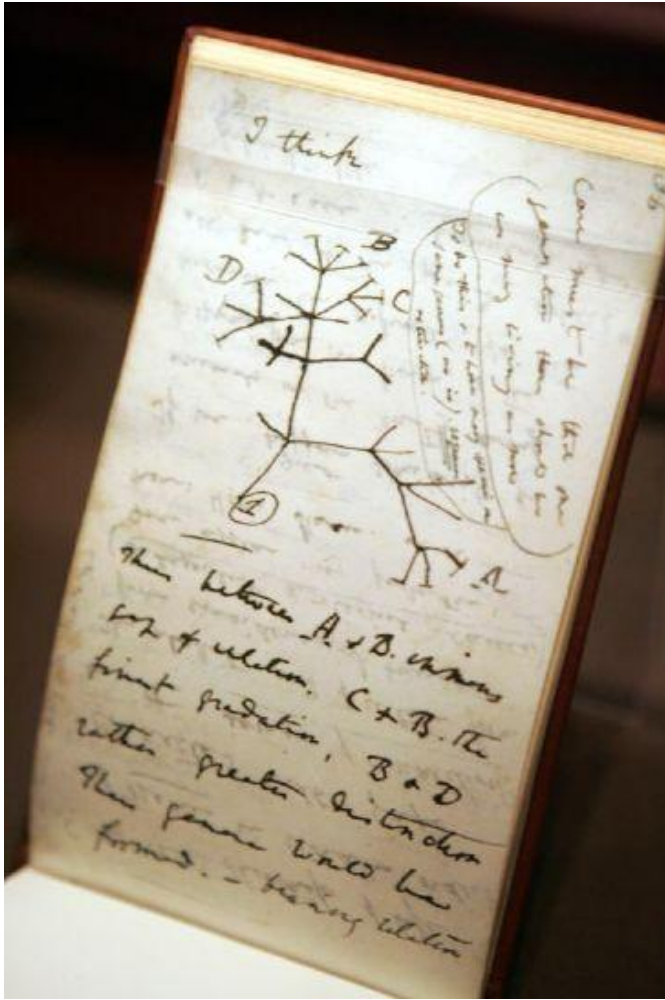 I think
Case must be that one
generation then should be
as many living as now
To do this & to have many species in
same genus (as is) requires
extinction.
B
D
C
A
1
Thus between A & B. immens
gap of relation. C & B. the
finest gradation, B & D
rather greater distinction
Thus genera would be
formed. — bearing relation
36